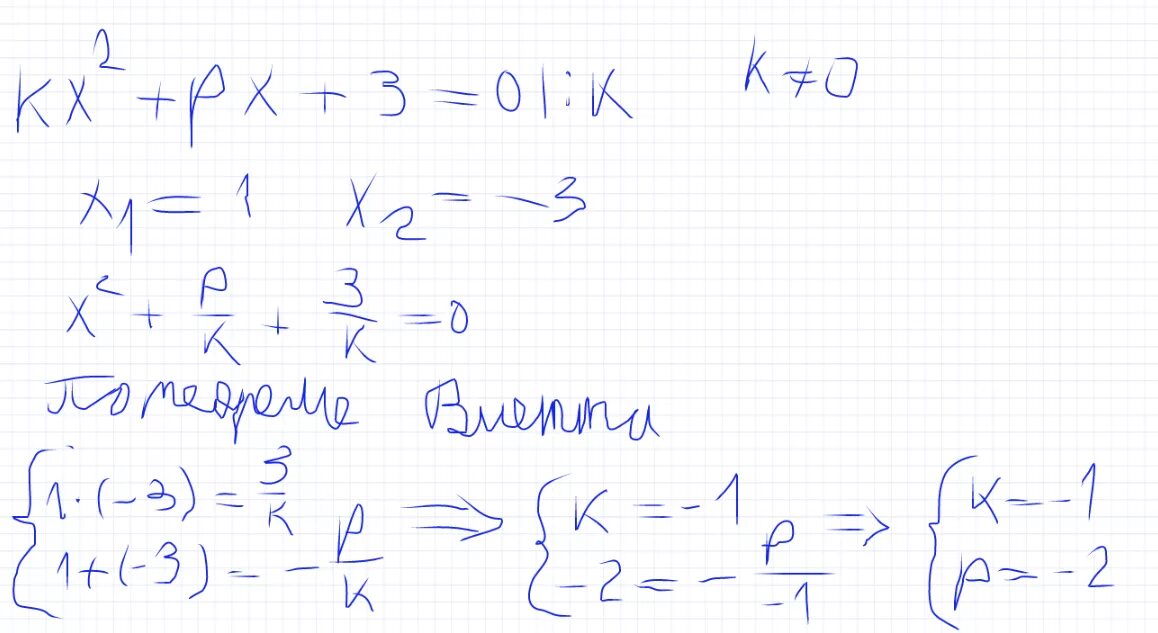 kx² + px + 3 = 0 |:k    k ≠ 0
x₁ = 1    x₂ = -3
x² + p/k + 3/k = 0
По теореме Виетта
{ 1·(-3) = 3/k ; 1+(-3) = -p/k ⇒ { k = -1 ; -2 = -p/-1 ⇒ { k = -1 ; p = -2